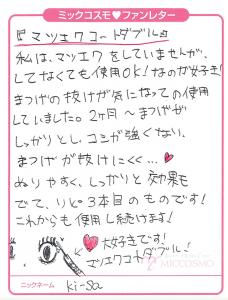 ミックコスモ♥ファンレター
『マツエクコートダブル』
私は、マツエクをしていませんが、
してなくても使用OK!なのが好き!
まつげの抜けが気になっての使用
していました。2ヶ月〜まつげが
しっかりとし、コシが強くなり、
まつげが抜けにくく…♥
ぬりやすく、しっかりと効果も
でて、リピ3本目のものです!
これからも使用し続けます!
♥大好きです!
マツエクコートダブル!
MICCOSMO
ニックネーム ki-sa